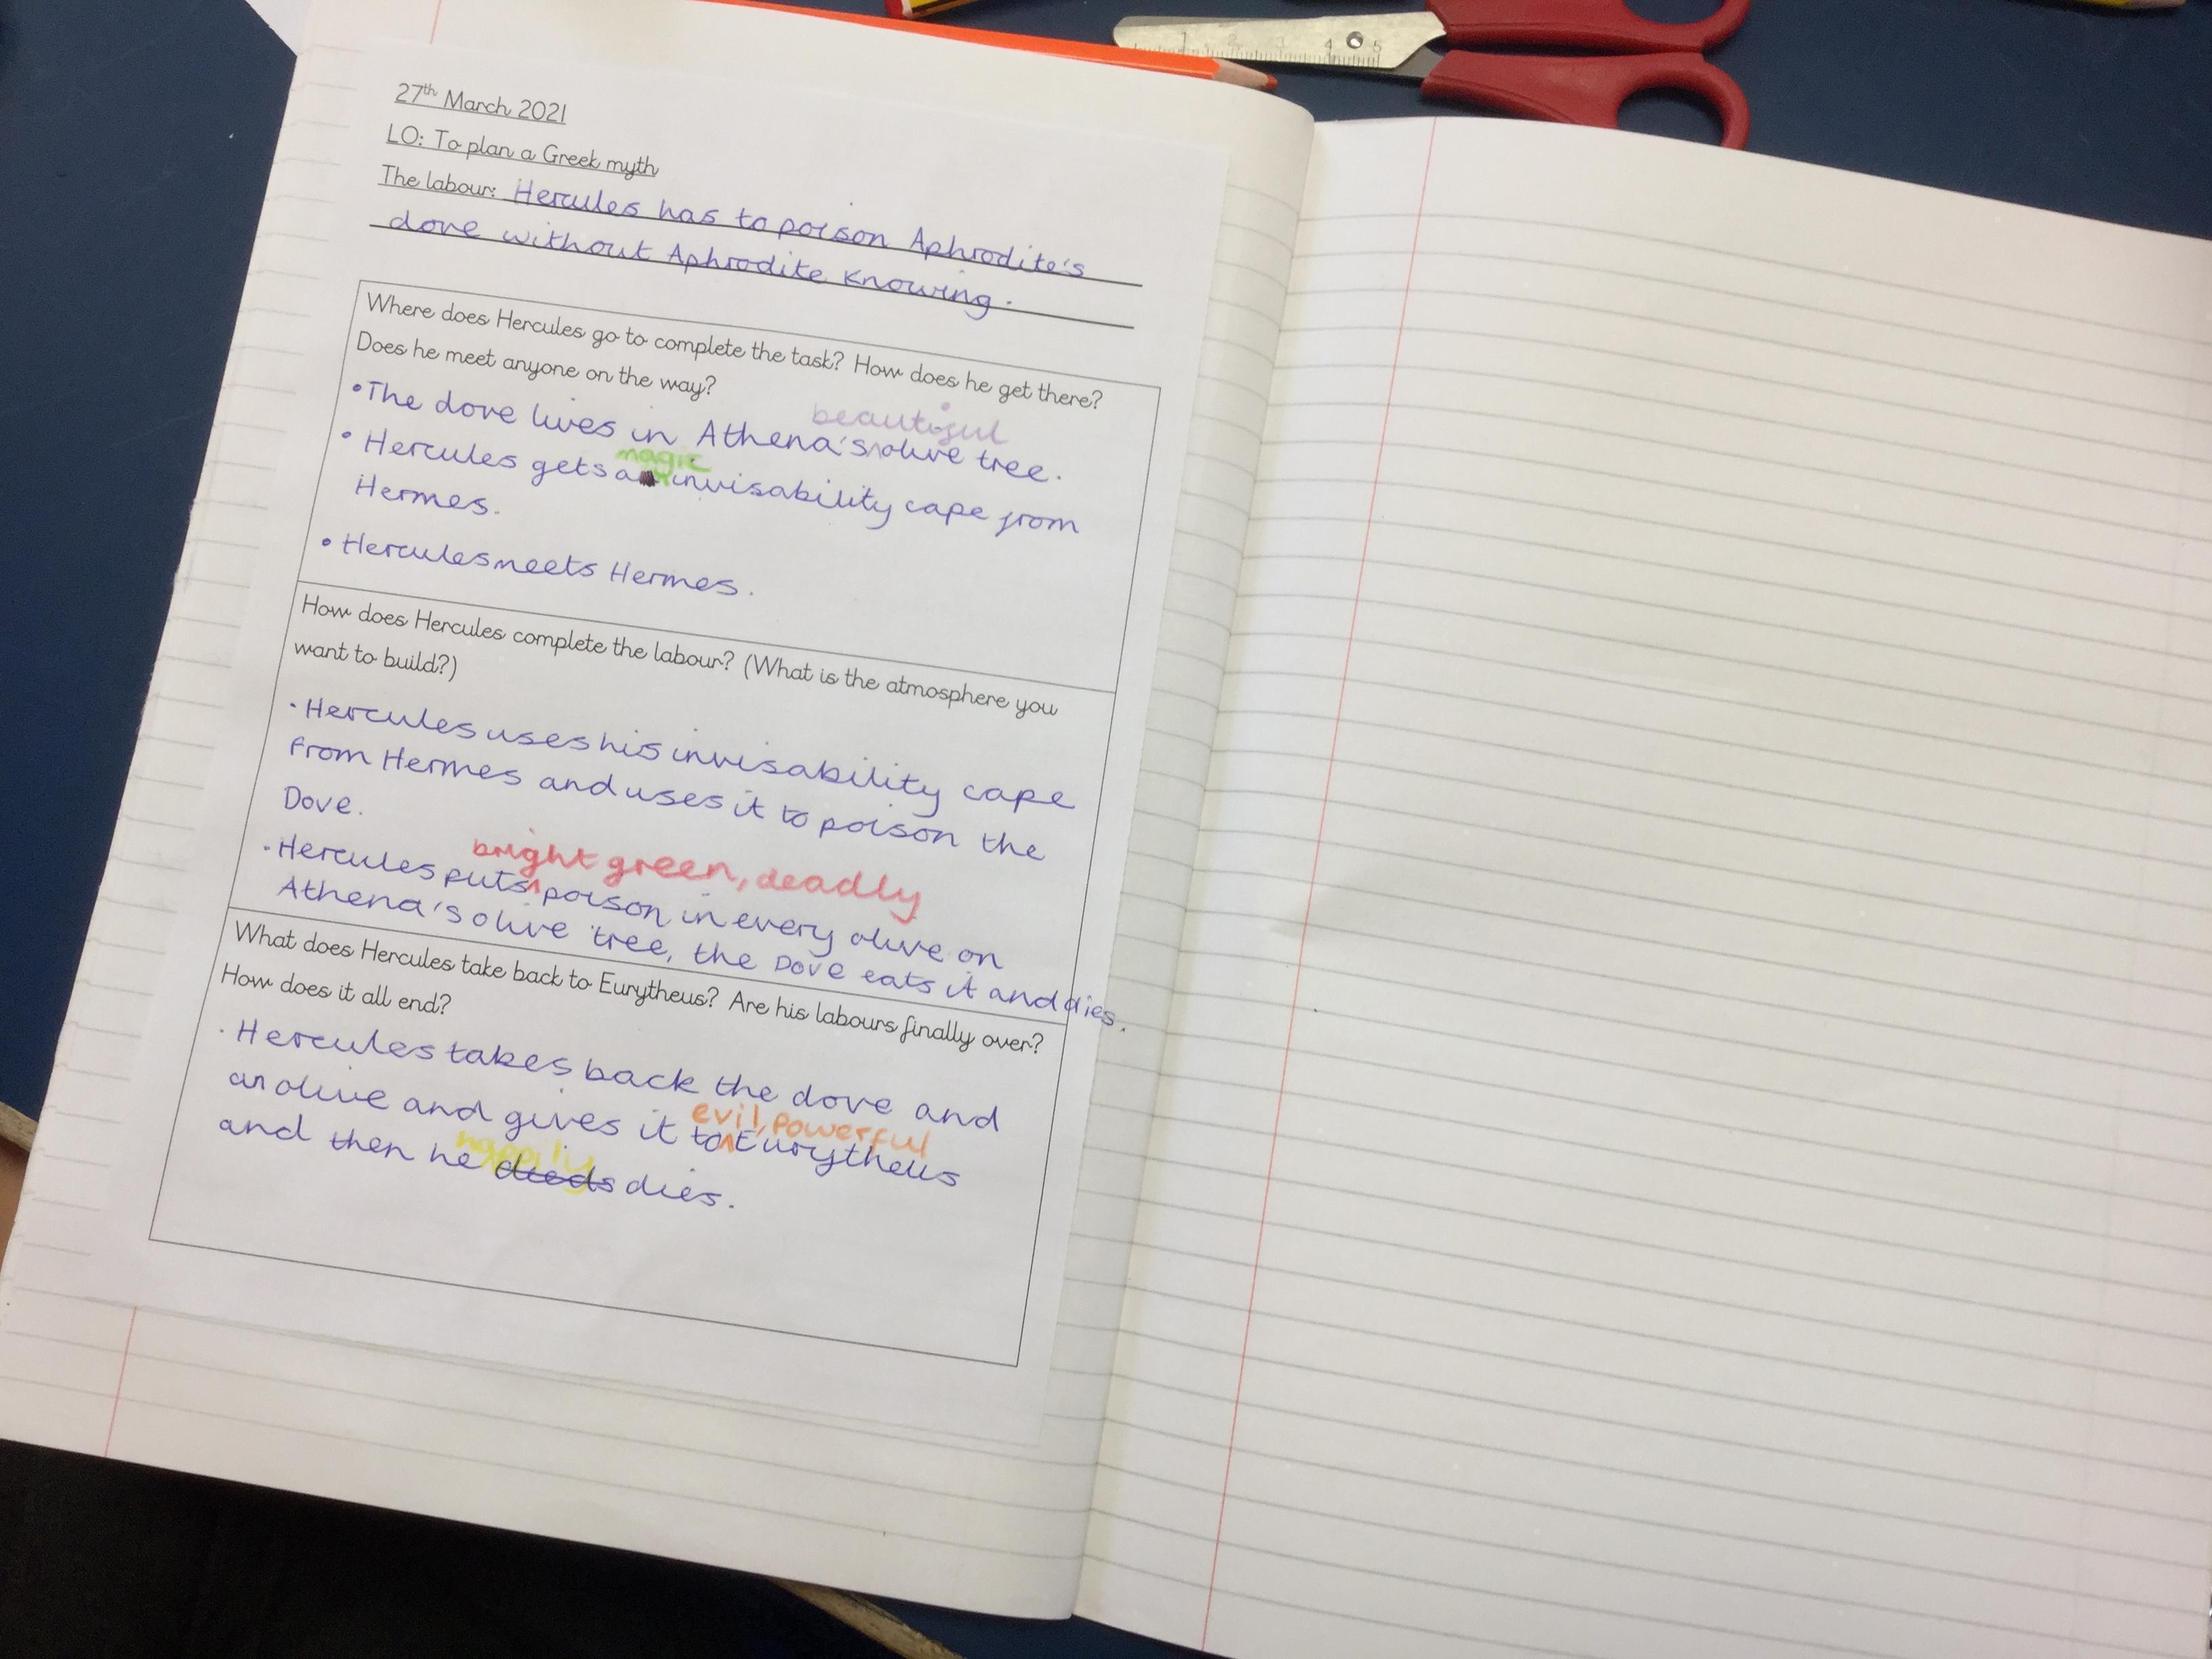 27th March 2021
LO: To plan a Greek myth
The labour: Hercules has to poison Aphrodite's
dove without Aphrodite knowing.
Where does Hercules go to complete the task? How does he get there?
Does he meet anyone on the way?
beautiful
•The dove lives in Athena's olive tree.
magic
• Hercules gets a invisability cape from
Hermes.
• Hercules meets Hermes.
How does Hercules complete the labour? (What is the atmosphere you
want to build?)
· Hercules uses his invisability cape
from Hermes and uses it to poison the
Dove.
bright green, deadly
· Hercules puts poison in every olive on
Athena's olive tree, the Dove eats it and dies.
What does Hercules take back to Eurytheus? Are his labours finally over?
How does it all end?
· Hercules takes back the dove and
an olive and gives it to Eurytheus
evil, powerful
happily
and then he dieds dies.
1 2 3 4 5